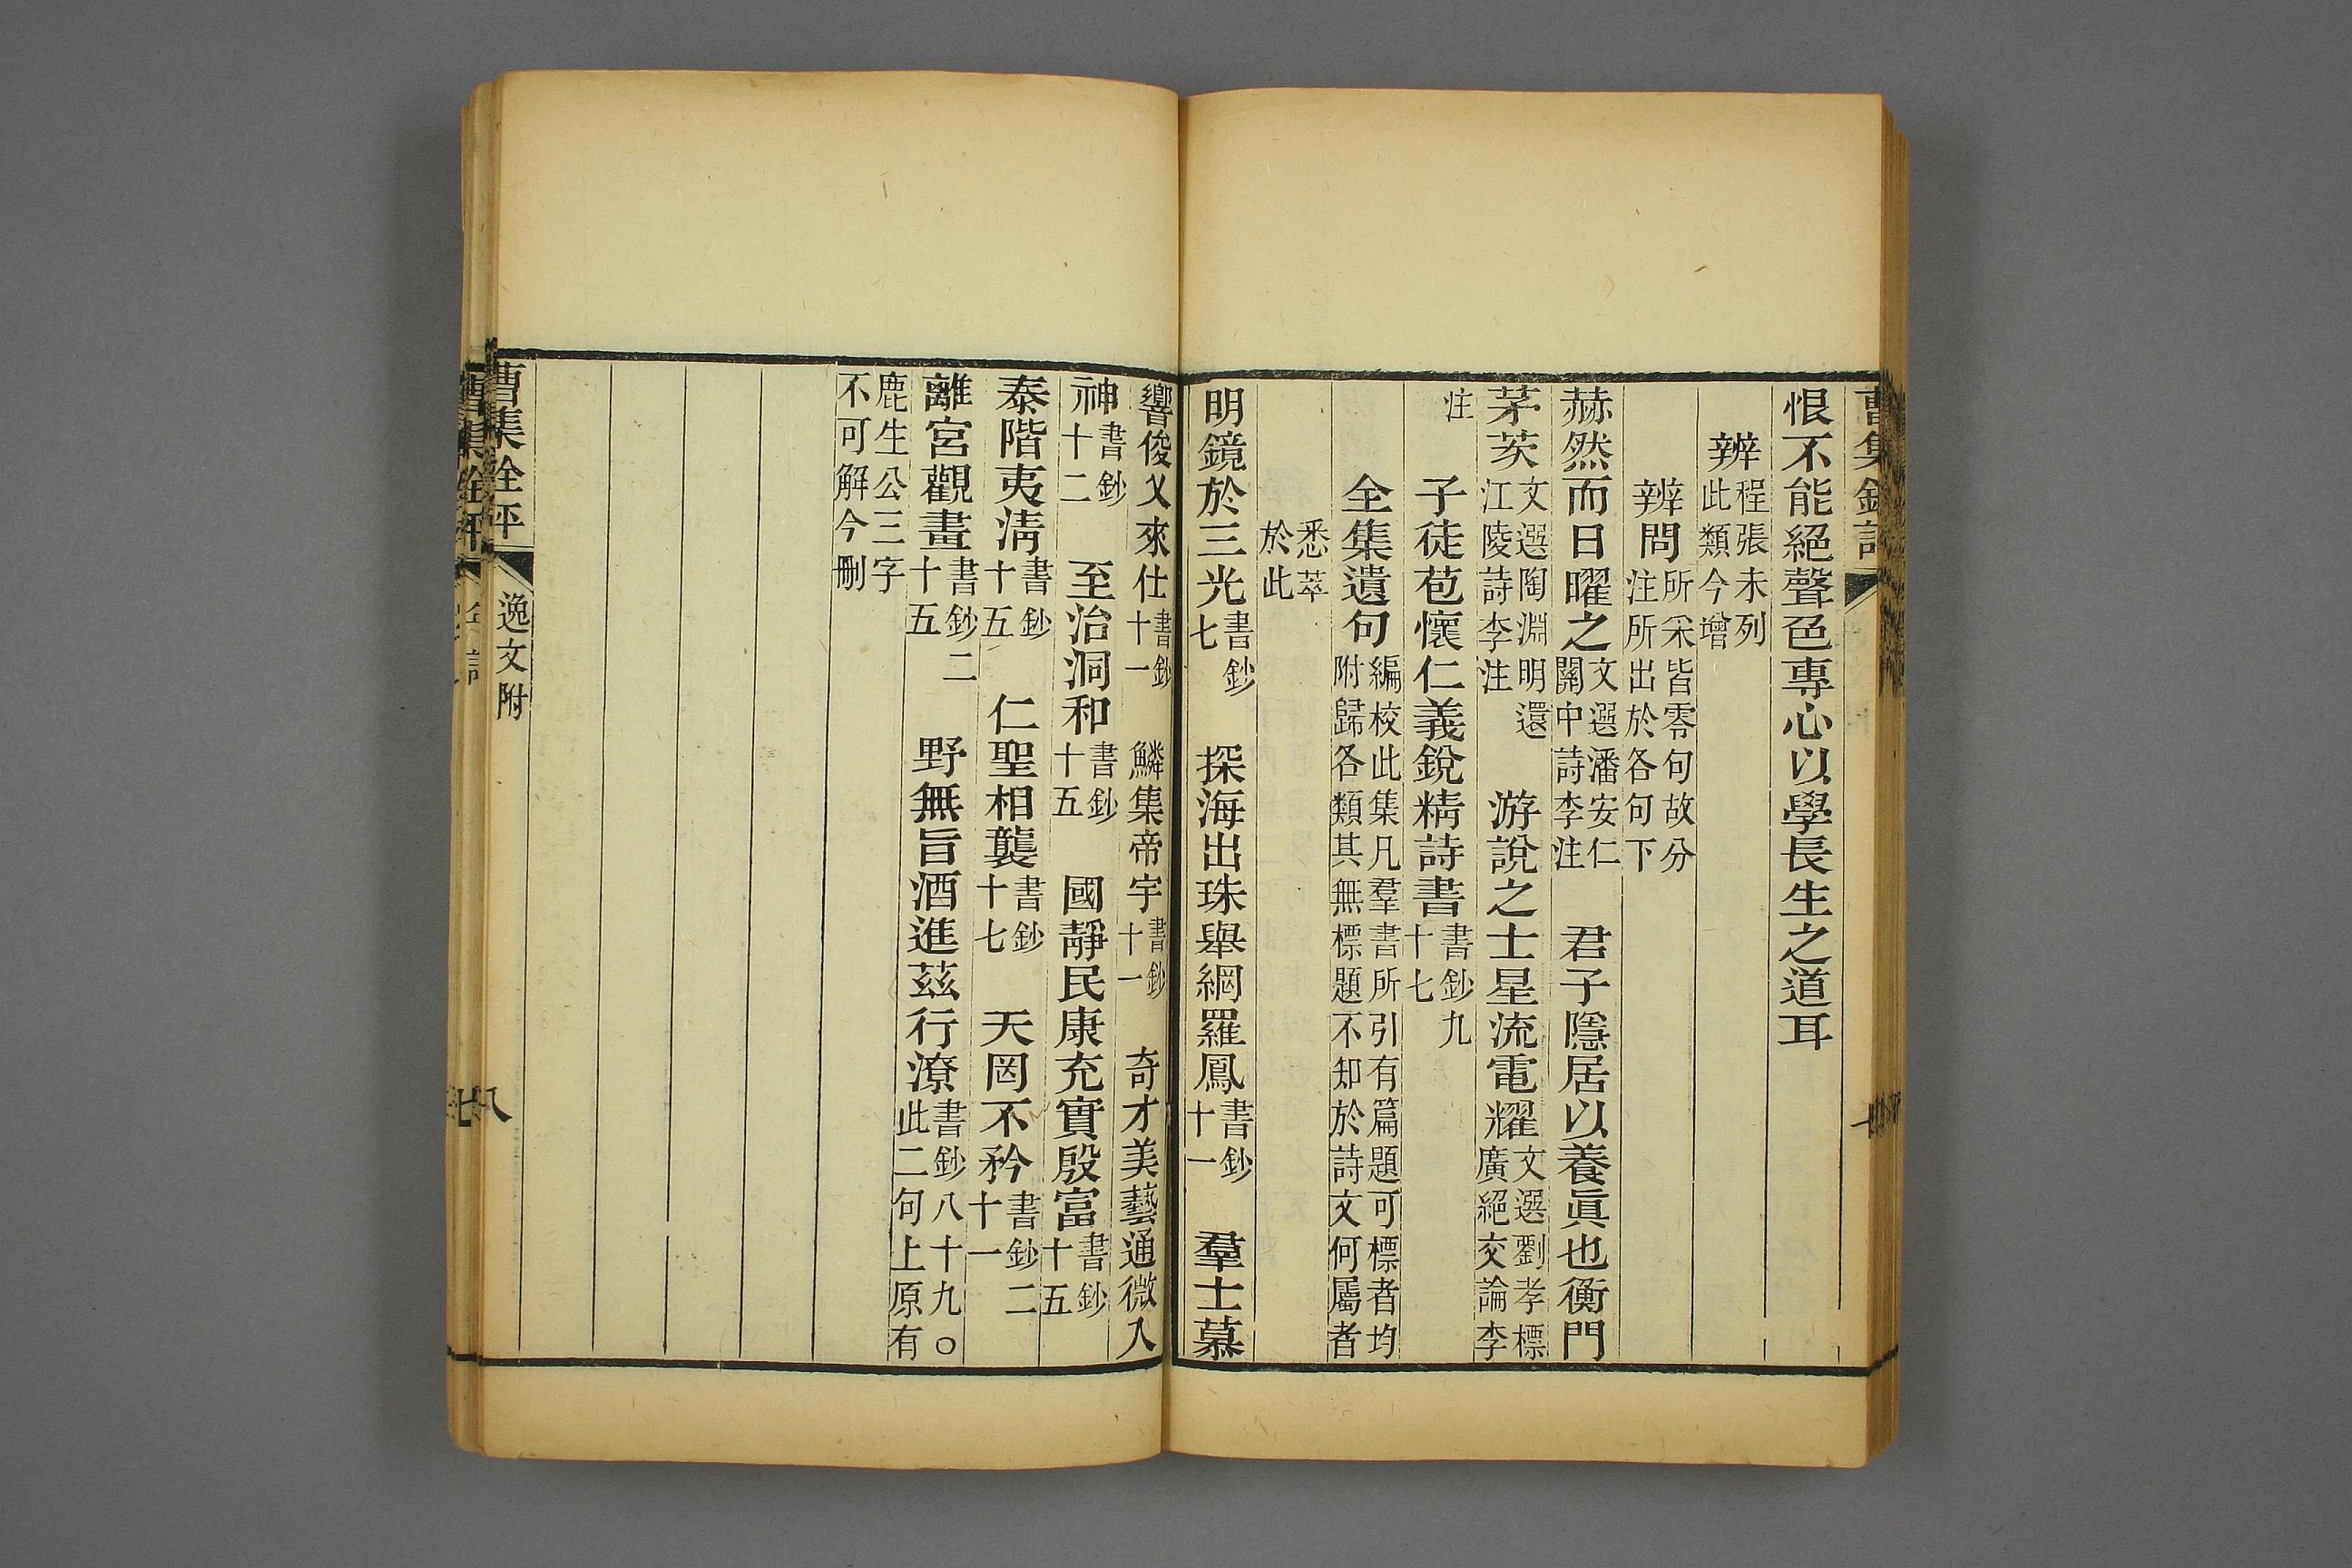 恨不能絕聲色專心以學長生之道耳
辨程張未列此類今增
辨問所采皆零句故分注所出於各句下
赫然而日曜之文選潘安仁關中詩李注 君子隱居以養眞也衡門
茅茨文選陶淵明還江陵詩李注 游說之士星流電耀文選劉孝標廣絕交論李
注 子徒苞懷仁義銳精詩書書鈔九十七
全集遺句編校此集凡羣書所引有篇題可標者均附歸各類其無標題不知於詩文何屬者
悉萃於此
明鏡於三光書鈔七 探海出珠舉網羅鳳書鈔十一 羣士慕
響俊乂來仕書鈔十一 鱗集帝宇書鈔十一 奇才美藝通微入
神書鈔十二 至治洞和書鈔十五 國靜民康充實殷富書鈔十五
泰階夷清書鈔十五 仁聖相襲書鈔十七 天罔不矜書鈔二十一
離宮觀畫書鈔二十五 野無旨酒進茲行潦書鈔八十九○此二句上原有
鹿生公三字不可解今刪
曹集銓評 逸文附 八